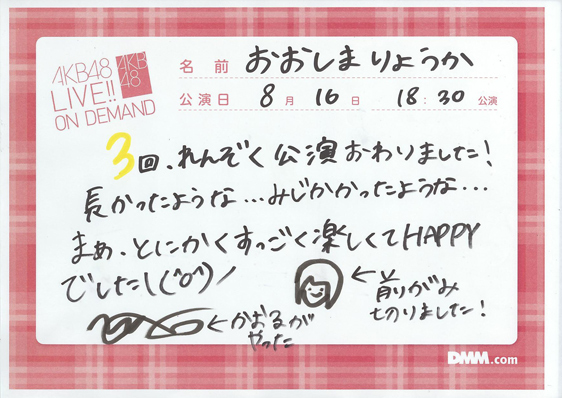 AKB48
LIVE!!
ON DEMAND
AKB
48
名前 おおしまりょうか
公演日 8月 16日 18:30 公演
3回、れんぞく公演おわりました!
長かったような…みじかかったような…
まぁ、とにかくすっごく楽しくてHAPPY
でした!(^o^)ノ
←前がみ
切りました!
←かおるが
やった
DMM.com